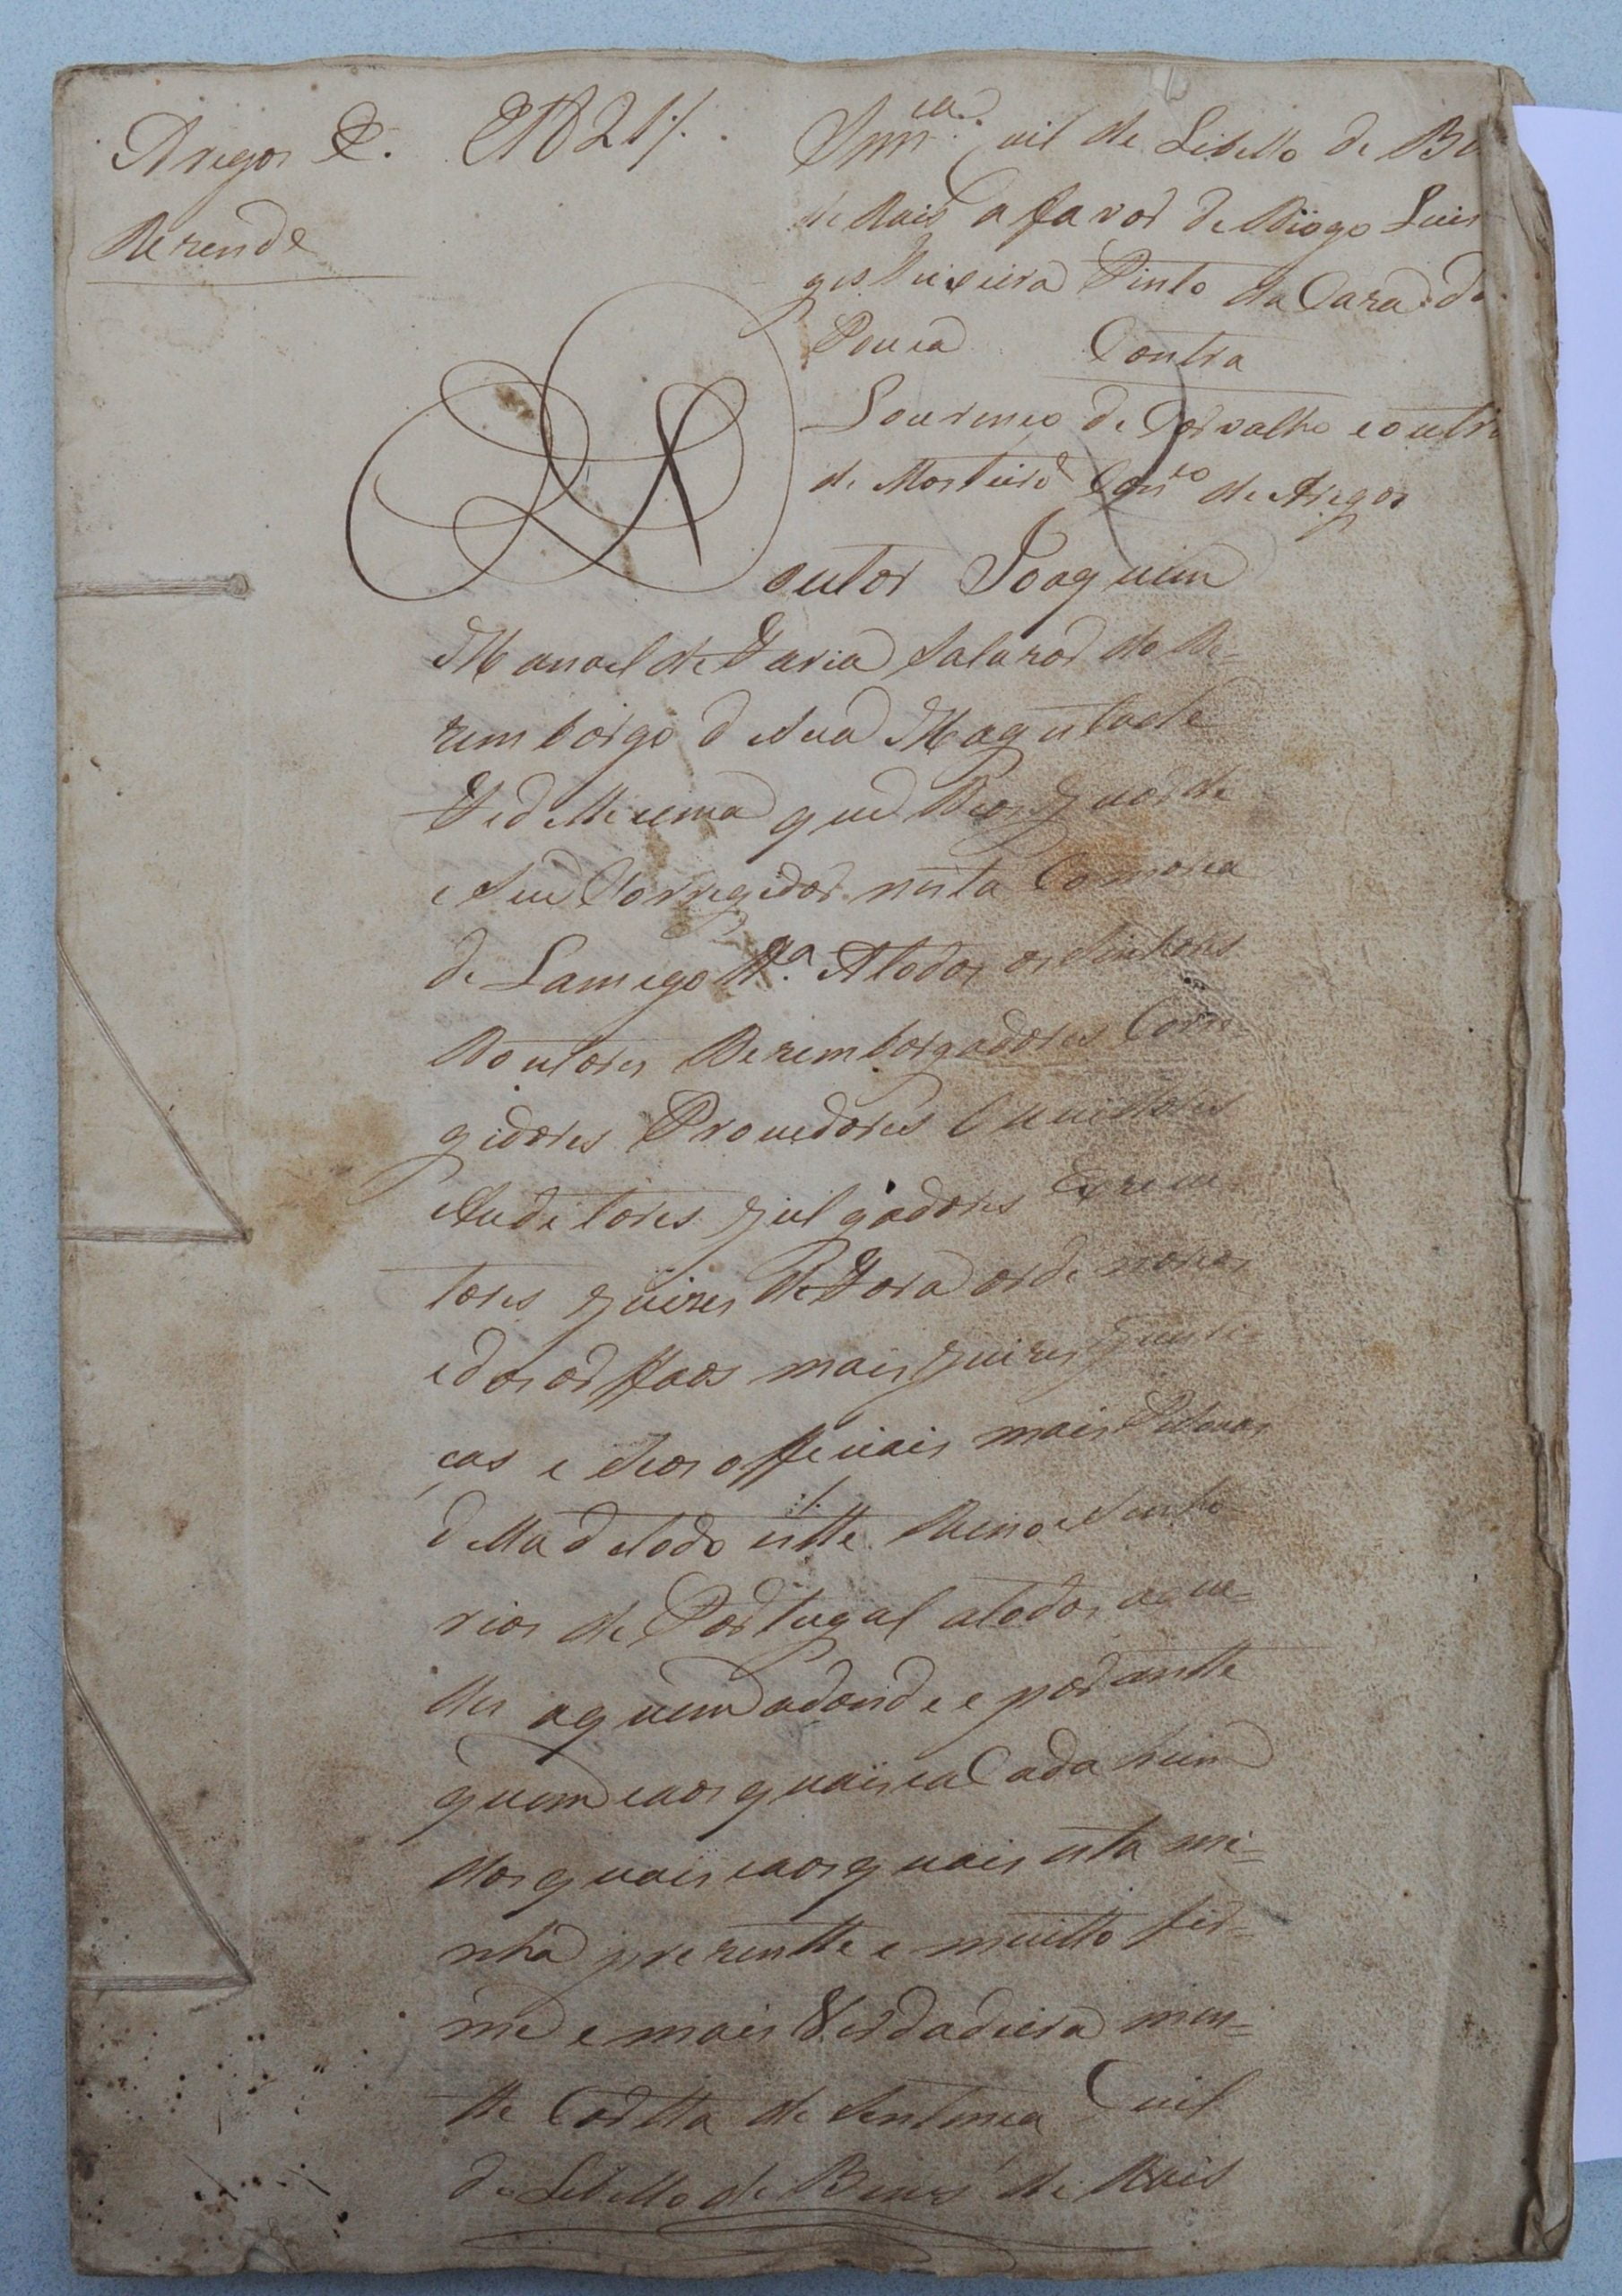 Aregos E. 1821/.
Rezende
Snnca. Civil de Libello de B
de Rais a favor de Diogo Luis
ges Teixeira Pinto da Caza da
Pouca Contra
Lourenco de Carvalho e outro
de Mosteiro Conco de Aregos
Doutor Joaquim
Manoel de Faria Salazar do De=
zembargo de Sua Magestade
Fidellicima que Deos guarde
e Seu Corregedor nesta Comarca
de Lamego &a. A todos os Senhores
Doutores Dezembargadores Corre=
gidores Provedores Ouvidores
Auditores Julgadores Execu=
tores Juizes de Fora ordenarios
e dos orffaos mais Juizes Justi=
ças e Seos officiais mais Pesoas
della de todo este Reino e Senho=
rios de Portugal a todos aque=
lles aquem adonde e por antte
quem e aos quais e a Cada hum
dos quais e aos quais esta mi=
nha prezentte e muitto fir=
me e mais Verdadeira men=
tte Cartta de Sentenca Civil
de Libello de Bens de Rais